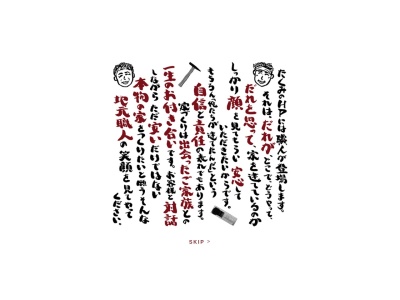 たくみのHPには職人が登場します。
それは、だれが、どこで、どうやって、
だれと思って、家を建てているのか
しっかり顔を見てもらい安心して
いただきたいからです。
もちろん、俺たちが建てたんだという
自信と責任の表れでもあります。
家づくりは出会ったご家族との
一生のお付き合いです。お客様と対話
しながら、ただ安いだけではない
本物の家をつくりたいと思うそんな
地元職人の笑顔を見てやって
ください。
SKIP >